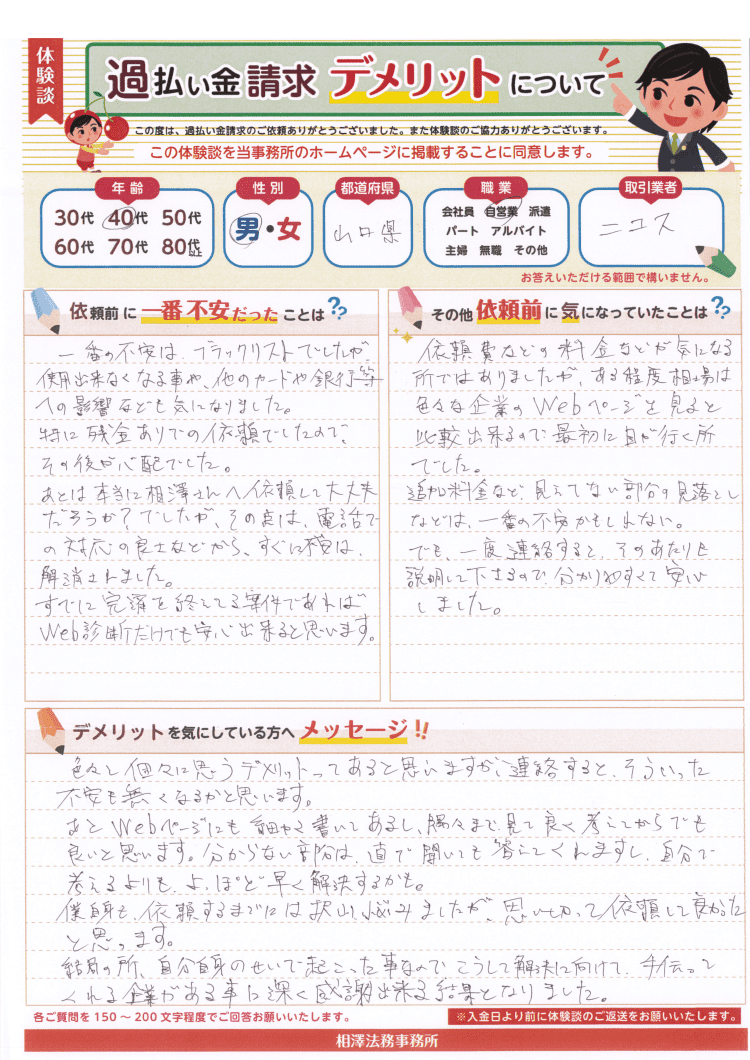 体験談
過払い金請求 デメリットについて
この度は、過払い金請求のご依頼ありがとうございました。また体験談のご協力ありがとうございます。
この体験談を当事務所のホームページに掲載することに同意します。
年齢
30代 40代 50代
60代 70代 80代以上
性別
男・女
都道府県
山口県
職業
会社員 自営業 派遣
パート アルバイト
主婦 無職 その他
取引業者
ニコス
お答えいただける範囲で構いません。
依頼前に一番不安だったことは??
一番の不安は、ブラックリストでしたが、
使用出来なくなる事や、他のカードや銀行等
への影響なども気になりました。
特に残金ありでの依頼でしたので、
その後が心配でした。
あとは本当に相澤さんへ依頼して大丈夫
だろうか?でしたが、その点は、電話で
の対応の良さなどから、すぐに不安は、
解消されました。
すでに完済を終えてる案件であれば
Web診断だけでも安心出来ると思います。
その他依頼前に気になっていたことは??
依頼費などの料金などが気になる
所ではありましたが、ある程度相場は
色々な企業のWebページを見ると
比較出来るので最初に目が行く所
でした。
追加料金など、見えてない部分の見落とし
などは、一番の不安かもしれない。
でも、一度連絡すると、そのあたりも
説明して下さるので、分かりやすくて安心
しました。
デメリットを気にしている方へメッセージ!!
色々と個々に思うデメリットってあると思いますが、連絡すると、そういった
不安も無くなるかと思います。
あとWebページにも細かく書いてあるし、隅々まで見て良く考えてからでも
良いと思います。分からない部分は、直で聞いても答えてくれますし、自分で
考えるよりも、よっぽど早く解決するかも。
僕自身も、依頼するまでには沢山悩みましたが、思い切って依頼して良かった
と思います。
結局の所、自分自身のせいで起こった事なので、こうして解決に向けて、手伝って
くれる企業がある事に深く感謝出来る結果となりました。
各ご質問を150～200文字程度でご回答お願いいたします。
※入金日より前に体験談のご返送をお願いいたします。
相澤法務事務所